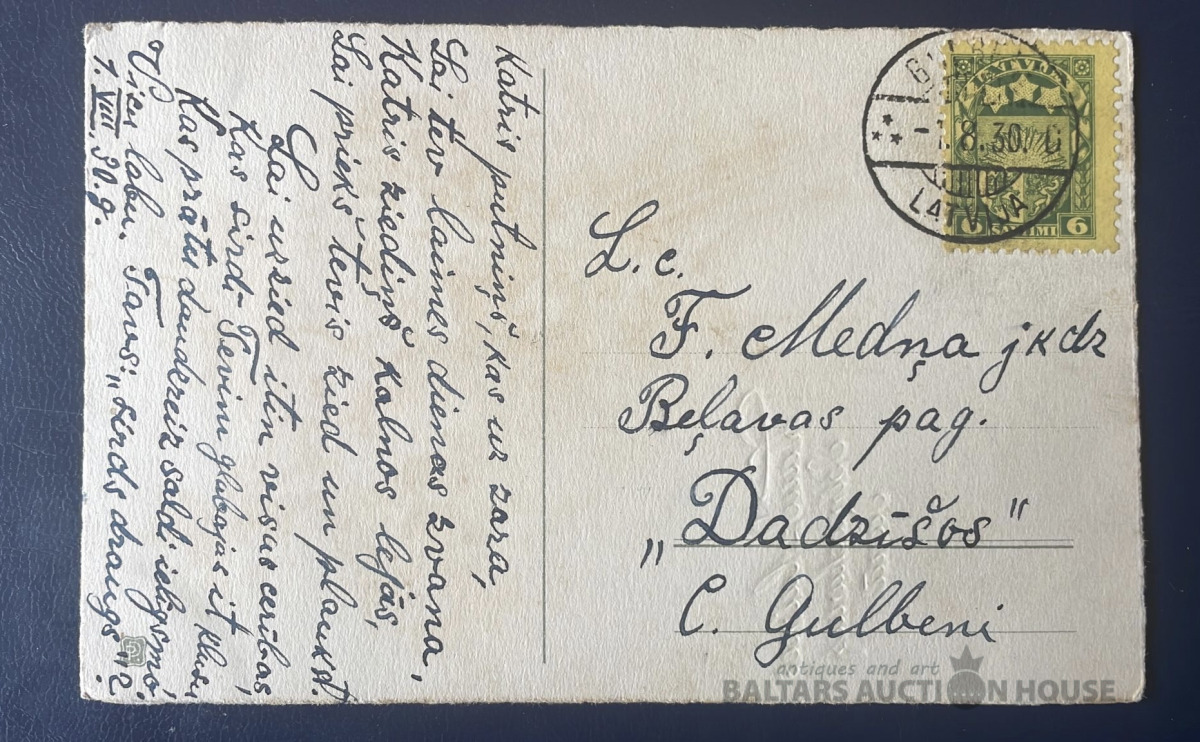 Katris putniņš, kas uz zara,
Lai tev laimes dienas zvana,
Katris ziediņš kalnos lejās,
Lai prieks tevis zied un plaukst.
Lai uzzied itin visas cerības,
Kas sirdī Tevim glabajas it klusu,
Kas prātu daudzreiz saldi
Visu labu. Tavs: „Sirds draugs"
1. VIII. 30. g.
LATVIJA
-1. 8. 30.
LATVIJA
6 SANTIMI 6
L. c.
F. Medņa jkdz
Beļavas pag.
„Dadzīšos"
C. Gulbeni
antiques and art
BALTARS AUCTION HOUSE